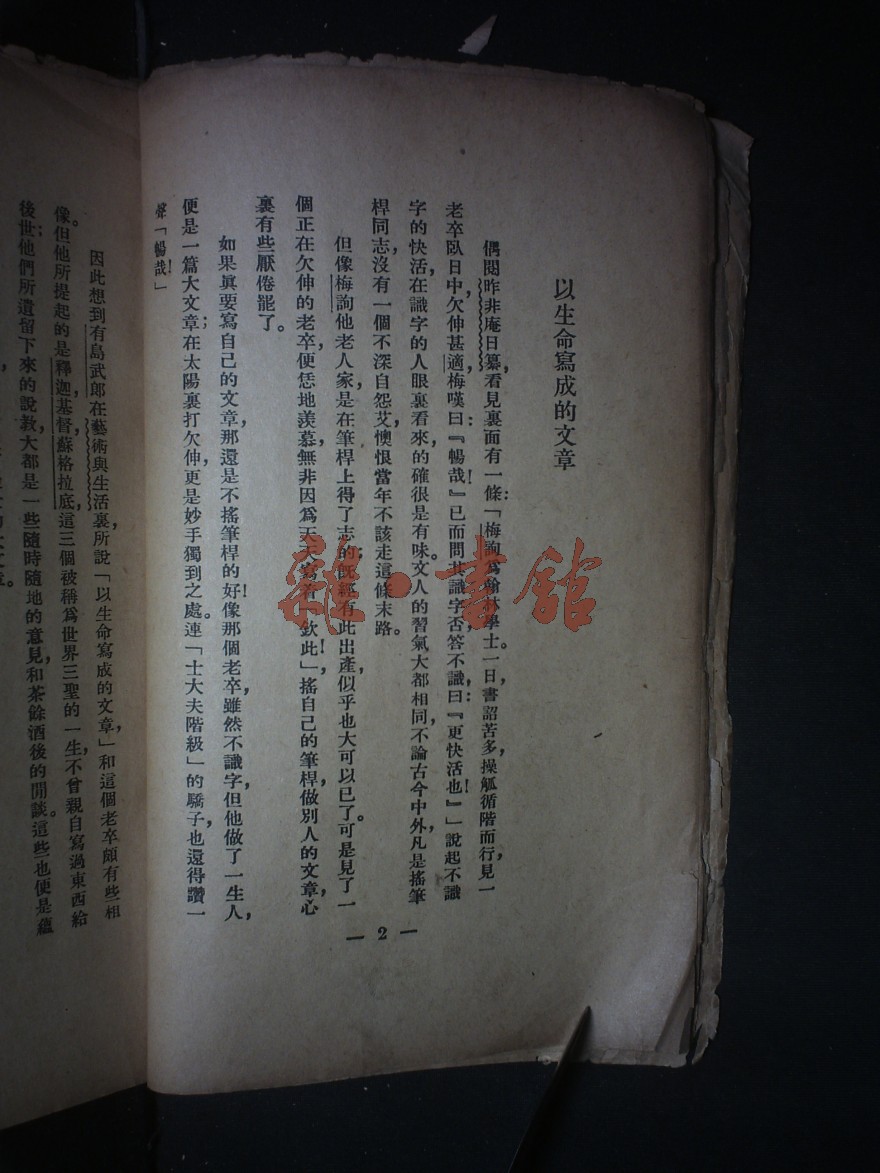 以生命寫成的文章
偶閱昨非庵日纂，看見裏面有一條：「梅詢爲翰林學士。一日書詔苦多，操觚循階而行，見一
老卒臥日中，欠伸甚適，梅嘆曰：『暢哉！』已而問其識字否，答不識，曰：『更快活也！』」說起不識
字的快活，在識字的人眼裏看來，的確很是有味。文人的習氣大都相同，不論古今中外，凡是搖筆
桿同志，沒有一個不深自怨艾，懊恨當年不該走這條末路。
但像梅詢他老人家，是在筆桿上得了志的；既經有此出產，似乎也大可以已了。可是見了一
個正在欠伸的老卒，便恁地羨慕，無非因爲天天寫着「欽此」，搖自己的筆桿，做別人的文章，心
裏有些厭倦罷了。
如果眞要寫自己的文章，那還是不搖筆桿的好！像那個老卒，雖然不識字，但他做了一生人，
便是一篇大文章；在太陽裏打欠伸，更是妙手獨到之處。連「士大夫階級」的驕子，也還得讚一
聲「暢哉！」
— 2 —
因此想到有島武郎在藝術與生活裏所說「以生命寫成的文章」，和這個老卒頗有些相
像。但他所提起的是釋迦，基督，蘇格拉底，這三個被稱爲世界三聖的一生，不曾親自寫過東西給
後世；他們所遺留下來的說教，大都是一些隨時隨地的意見，和茶餘酒後的閒談。這些也便是蘊
雜·書館